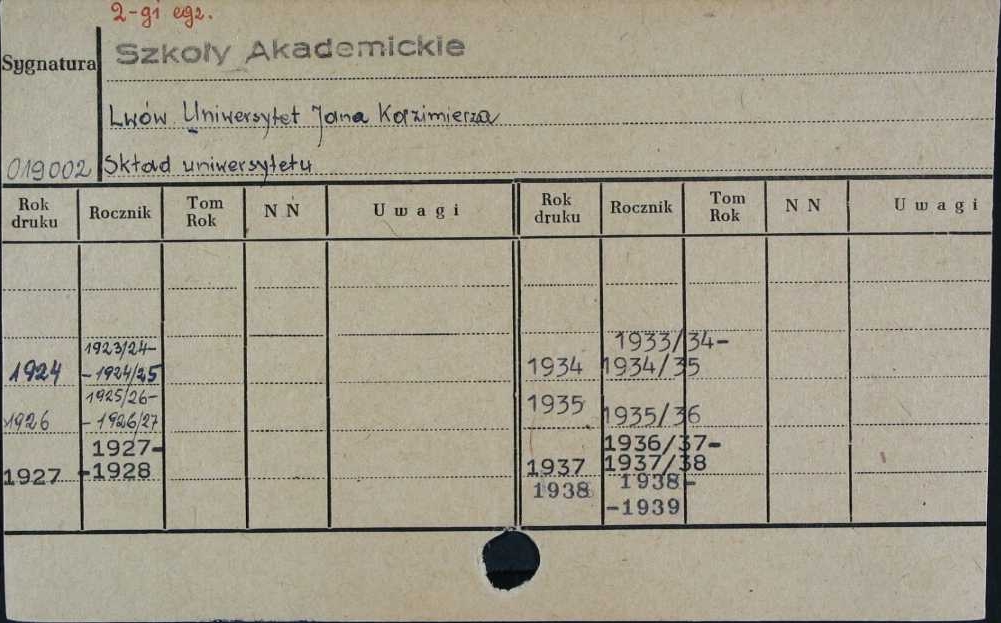 2-gi egz.
Sygnatura
Szkoły Akademickie
Lwów Uniwersytet Jana Kazimierza
019002 Skład uniwersytetu
Rok druku Rocznik Tom Rok N N Uwagi Rok druku Rocznik Tom Rok N N Uwagi
1923/24- 1933/34-
1924 -1924/25 1934 1934/35
1925/26- 1935
1926 -1926/27 1935/36
1927- 1936/37-
1927 -1928 1937 1937/38
1938 1938-
-1939